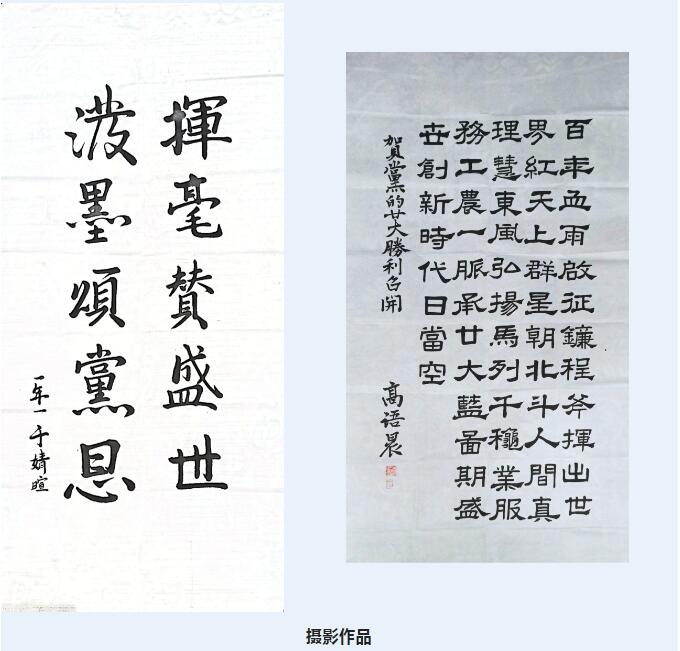 揮毫贊盛世
潑墨頌黨恩
一年一于婧暄
百年血雨啟征鐮程斧揮出世
界紅天上群星朝北斗人間真
理慧東風弘揚馬列千穐業服
務工農一脈承廿大藍啚期盛
世創新時代日當空
賀黨的廿大勝利召開
高語晨
摄影作品